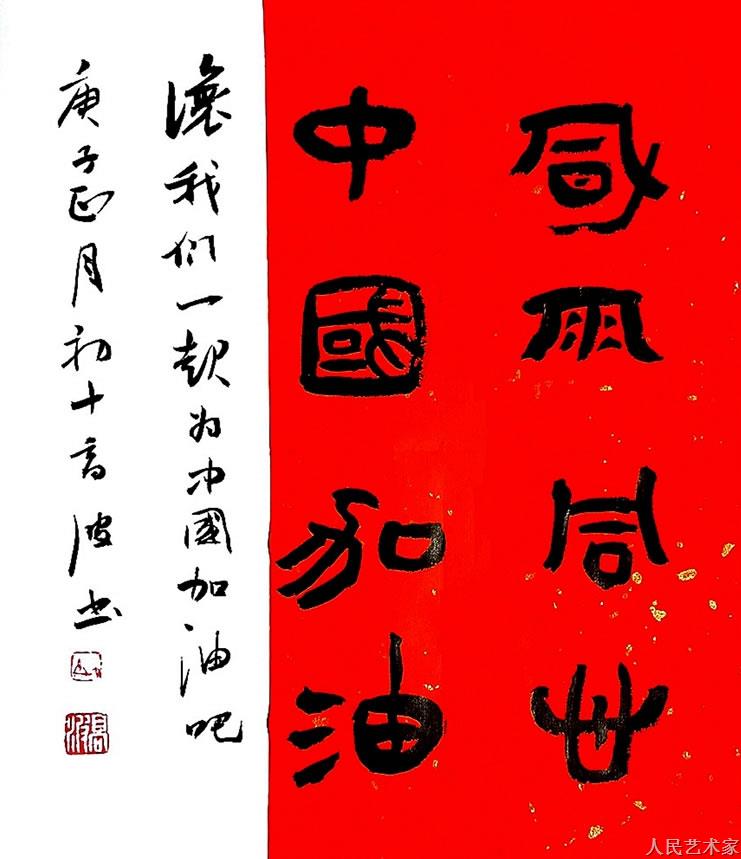 風雨同舟
中國加油
讓我们一起为中國加油吧
庚子正月初十高波书
高波
人民艺术家